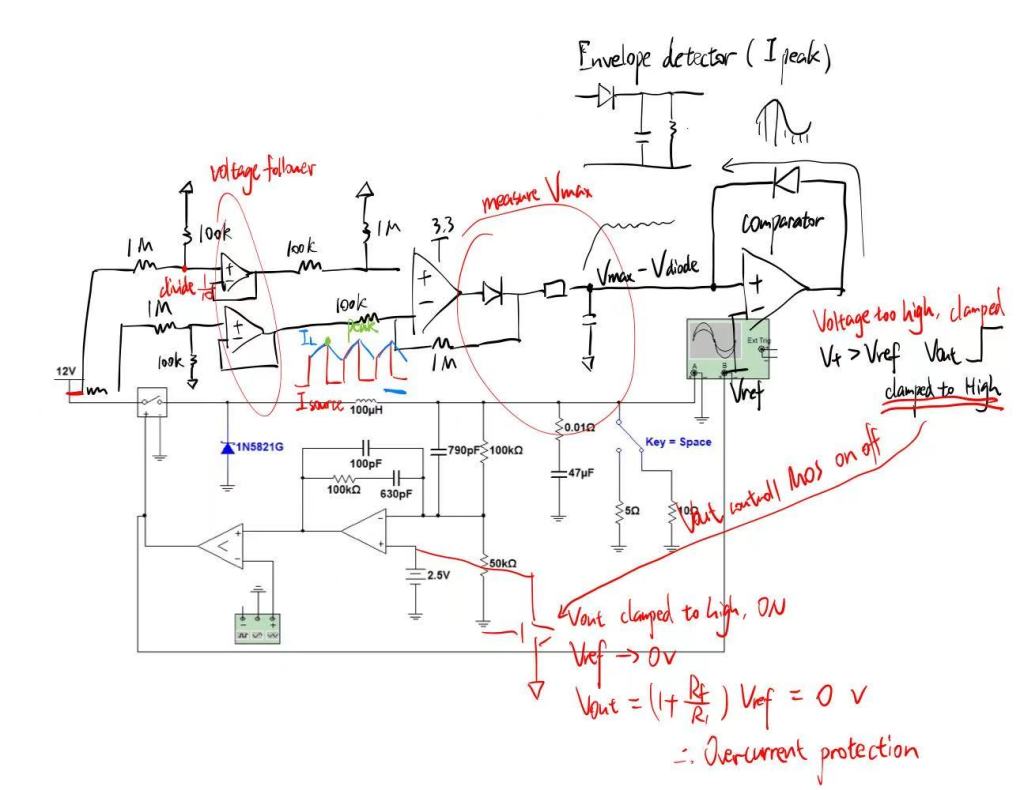 Envelope detector ( I peak )
voltage follower
measure Vmax
3.3
1M
100k
100k
1M
comparator
divide 1/10
1M
100k
Vmax - Vdiode
100k
IL
peak
1M
12V
I source
100µH
Ext Trig
A
B
Vref
Voltage too high, clamped
V+ > Vref Vout
clamped to High
1N5821G
790pF
100kΩ
0.01Ω
Key = Space
100pF
100kΩ
630pF
47µF
5Ω
Vout control MOS on off
2.5V
50kΩ
Vout clamped to high, ON
Vref → 0v
Vout = (1 + Rf/R1) Vref = 0 v
∴ Overcurrent protection